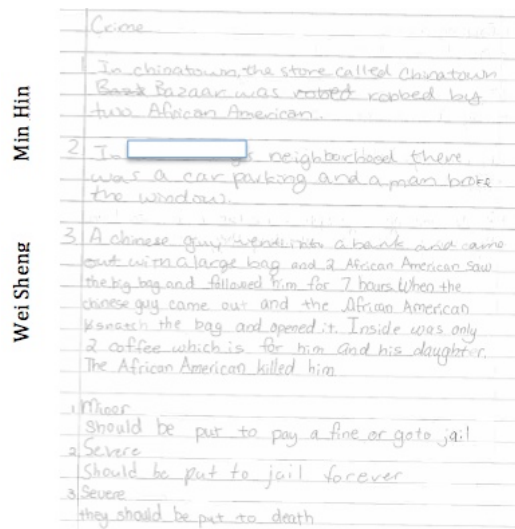 Min Hin
Wei Sheng
Crime
In chinatown, the store called Chinatown
Bazaar was robed robbed by
two African American.
2. In neighborhood there
was a car parking and a man broke
the window.
3. A chinese guy went into a bank and came
out with a large bag and 2 African American saw
the big bag and followed him for 7 hours. When the
chinese guy came out and the African American
snatch the bag and opened it. Inside was only
2 coffee which is for him and his daughter.
The African American killed him
1. Minor
Should be put to pay a fine or goto jail
2. Severe
Should be put to jail forever
3. Severe
they should be put to death